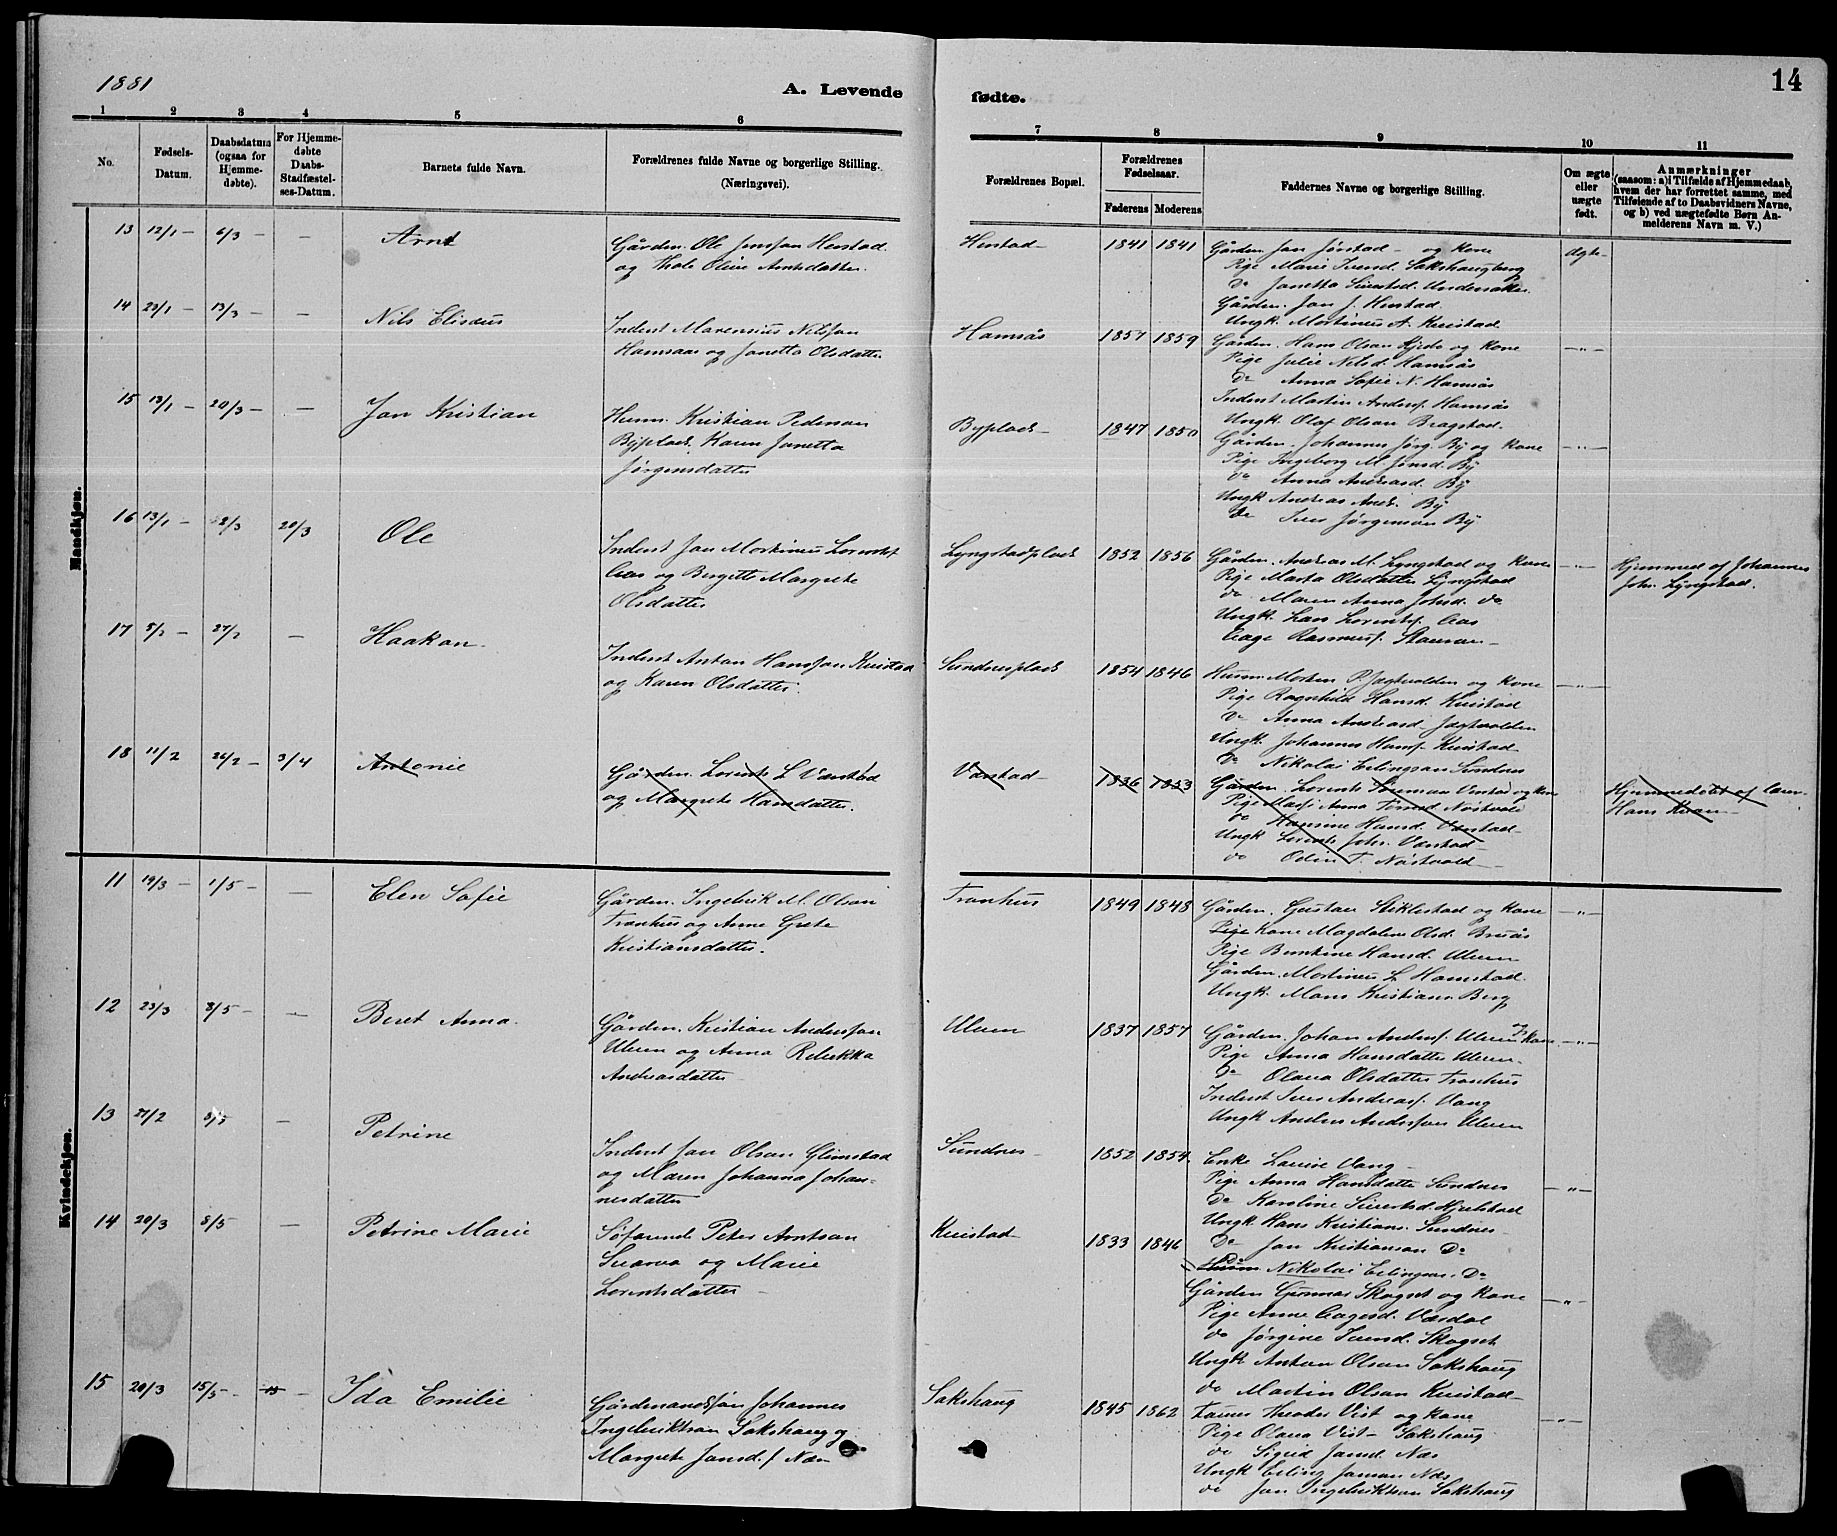 1881
A. Levende
fødte.
14
1 2 3 4 5 6 7 8 9 10 11
No.
Fødsels-Datum.
Daabsdatum (ogsaa for Hjemme-døbte).
For Hjemme-døbte Daabs-Stadfæstel-ses-Datum.
Barnets fulde Navn.
Forældrenes fulde Navne og borgerlige Stilling.
(Næringsvei).
Forældrenes Bopæl.
Forældrenes Fødselsaar.
Faderens Moderens
Faddernes Navne og borgerlige Stilling.
Om ægte eller uægte født.
Anmærkninger
(saasom: a) i Tilfælde af Hjemmedaab, hvem der har forrettet samme, med Tilføiende af to Daabsvidners Navne, og b) ved uægtefødte Børn An-melderens Navn m. V.)
Mandkjøn.
13 12/1 - 6/3 - - Arnt
Gården. Ole Jonssen Henstad
og Olive Arntsdatter.
Henstad 1841 1841
Gården Jon Jørstad og Kone
Pige Marie Iversd. Sakshaugberg
Do Janetta
Gården. Jon J. Henstad
Ungk. Mortinus A. Kvistad
ægte
14 23/1 - 13/3 - - Nils Eliseus
Inderst Marensius Nilssen
Hamsaas og Janetta Olsdatter
Hamsås 1857 1859
Gården. Hans Olsen og Kone
Pige Julie Nilsd. Hamsås
Do Anna Sofie N. Hamsås
Inderst Martin Anders. Hamsås
Ungk. Olaf Olsen Bragstad
15 13/1 - 20/3 - - Jon Kristian
Husm. Kristian Pedersen
Byplads. Karen Janetta
Jørgensdatter
Byplads 1847 1850
Gården. Johannes Jørg. By og Kone
Pige Ingeborg M. Jonsd. By
do Anna Andreasd. By
Ungk Andreas Andr. By
do Iver Jørgensen By
16 13/1 - 20/3 Ole
Inderst Jon Mortinus Lorents.
Aas og Bergitte Margrete
Olsdatter
Lyngstadplads 1852 1856
Gården. Andreas M. Lyngstad og Kone
Pige Marta Olsdatter Lyngstad
do Maren Anna Johsd. do
Ungk. Lars Lorents. Aas
Aage Rasmus.
Hjemmed af Johannes
Joh. Lyngstad.
17 27/2 - Haakon
Inderst Anton Hanssen Kvistad
og Karen Olsdatter.
Sundnesplads 1854 1846
Husm. Morten P. Jægtvolden og Kone
Pige Ragnhild Hansd. Kvistad
Do Anna Andreasd. Jægtvolden
Ungk. Johannes Hans. Kvistad
Do Nikolai Erlingsen Sundnes
18 11/2 26/2 - 3/4 Antonie
Gården. Lorents L Vanstad
og Margrete Hansdatter.
Vanstad 1836 1833
Gården Lorents Vanstad og Kone
Pige Anna
do Hansine Hansd. Vanstad
Ungk Lorents Joh. Vanstad
do Odin T.
Hjemmedøbt af
Hans
Kvindekjøn.
11 19/3 - 1/5 - - Elen Sofie
Gården. Ingebrik M. Olsen
Tronhus og Anne Grete
Kristiansdatter.
Tronhus 1849 1848
Gården. Gustav Stiklestad og Kone
Pige Kone Magdalene Olsd. Bruås
Pige Berntine Hansd. Ulven
Gården. Mortinus L. Hamstad
Ungk. Mons Kristians. Berg
12 23/3 8/5 - - Beret Anna
Gården. Kristian Anderssen
Ulven og Anna Rebekka
Andreasdatter
Ulven 1837 1857
Gården. Johan Anders. Ulven og Kone
Pige Anna Hansdatter Ulven
Do Olava Olsdatter Tronhus
Inderst Iver Andreas. Vang
Ungk Anders Anderssen Ulven
13 21/2 8/5 - Petrine
Inderst Jon Olsen Glimstad
og Maren Johanna Johan-
nesdatter
Sundnes 1852 1854
Enke Lovise Vang
Pige Anna Hansdatter Sundnes
Do Karoline Sivertsd. Hjelstad
Ungk. Hans Kristians. Sundnes
Do Jon Kristiansen Do
do Nikolai Erlings. Do
14 20/3 8/5 - Petrine Marie
Søfarende Peter Arntsen
Svarva og Marie
Lorentsdatter
Kvistad 1833 1846
Gården Gunnar Skogset og Kone
Pige Anne Aagesd. Værdal
do Jørgine Iversd. Skogset
Ungk. Anton Olsen Sakshaug
do Martin Olsen Kvistad
15 20/3 15/5 - Ida Emilie
Gårdmandssøn Johannes
Ingebriktsen Sakshaug og
Margrete Jonsd. / Næs
Sakshaug 1845 1862
Theodor Vist og Kone
Pige Olava Vist - Sakshaug
do Sigrid Jonsd. Næs
Ungk Erling Jonsen Næs
do Jon Ingebriktsen Sakshaug